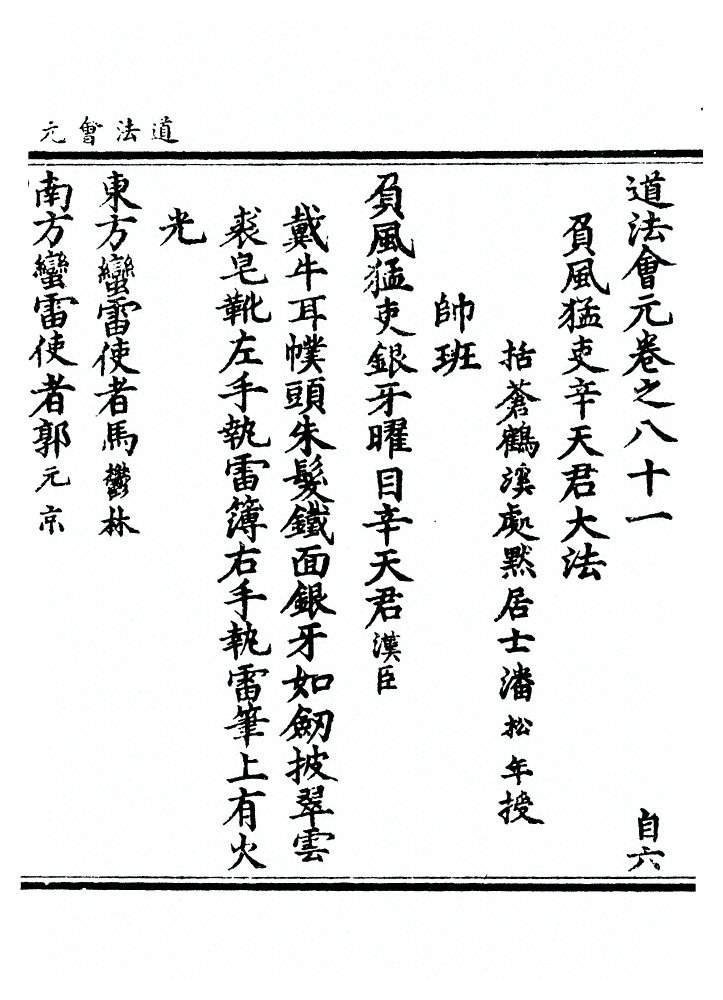 道法會元
道法會元卷之八十一　自六
負風猛吏辛天君大法
括蒼鶴溪處默居士潘松年授
帥班
負風猛吏銀牙曜目辛天君漢臣
戴牛耳幞頭朱髮鐵面銀牙如劒披翠雲
裘皂靴左手執雷簿右手執雷筆上有火
光
東方蠻雷使者馬鬱林
南方蠻雷使者郭元京